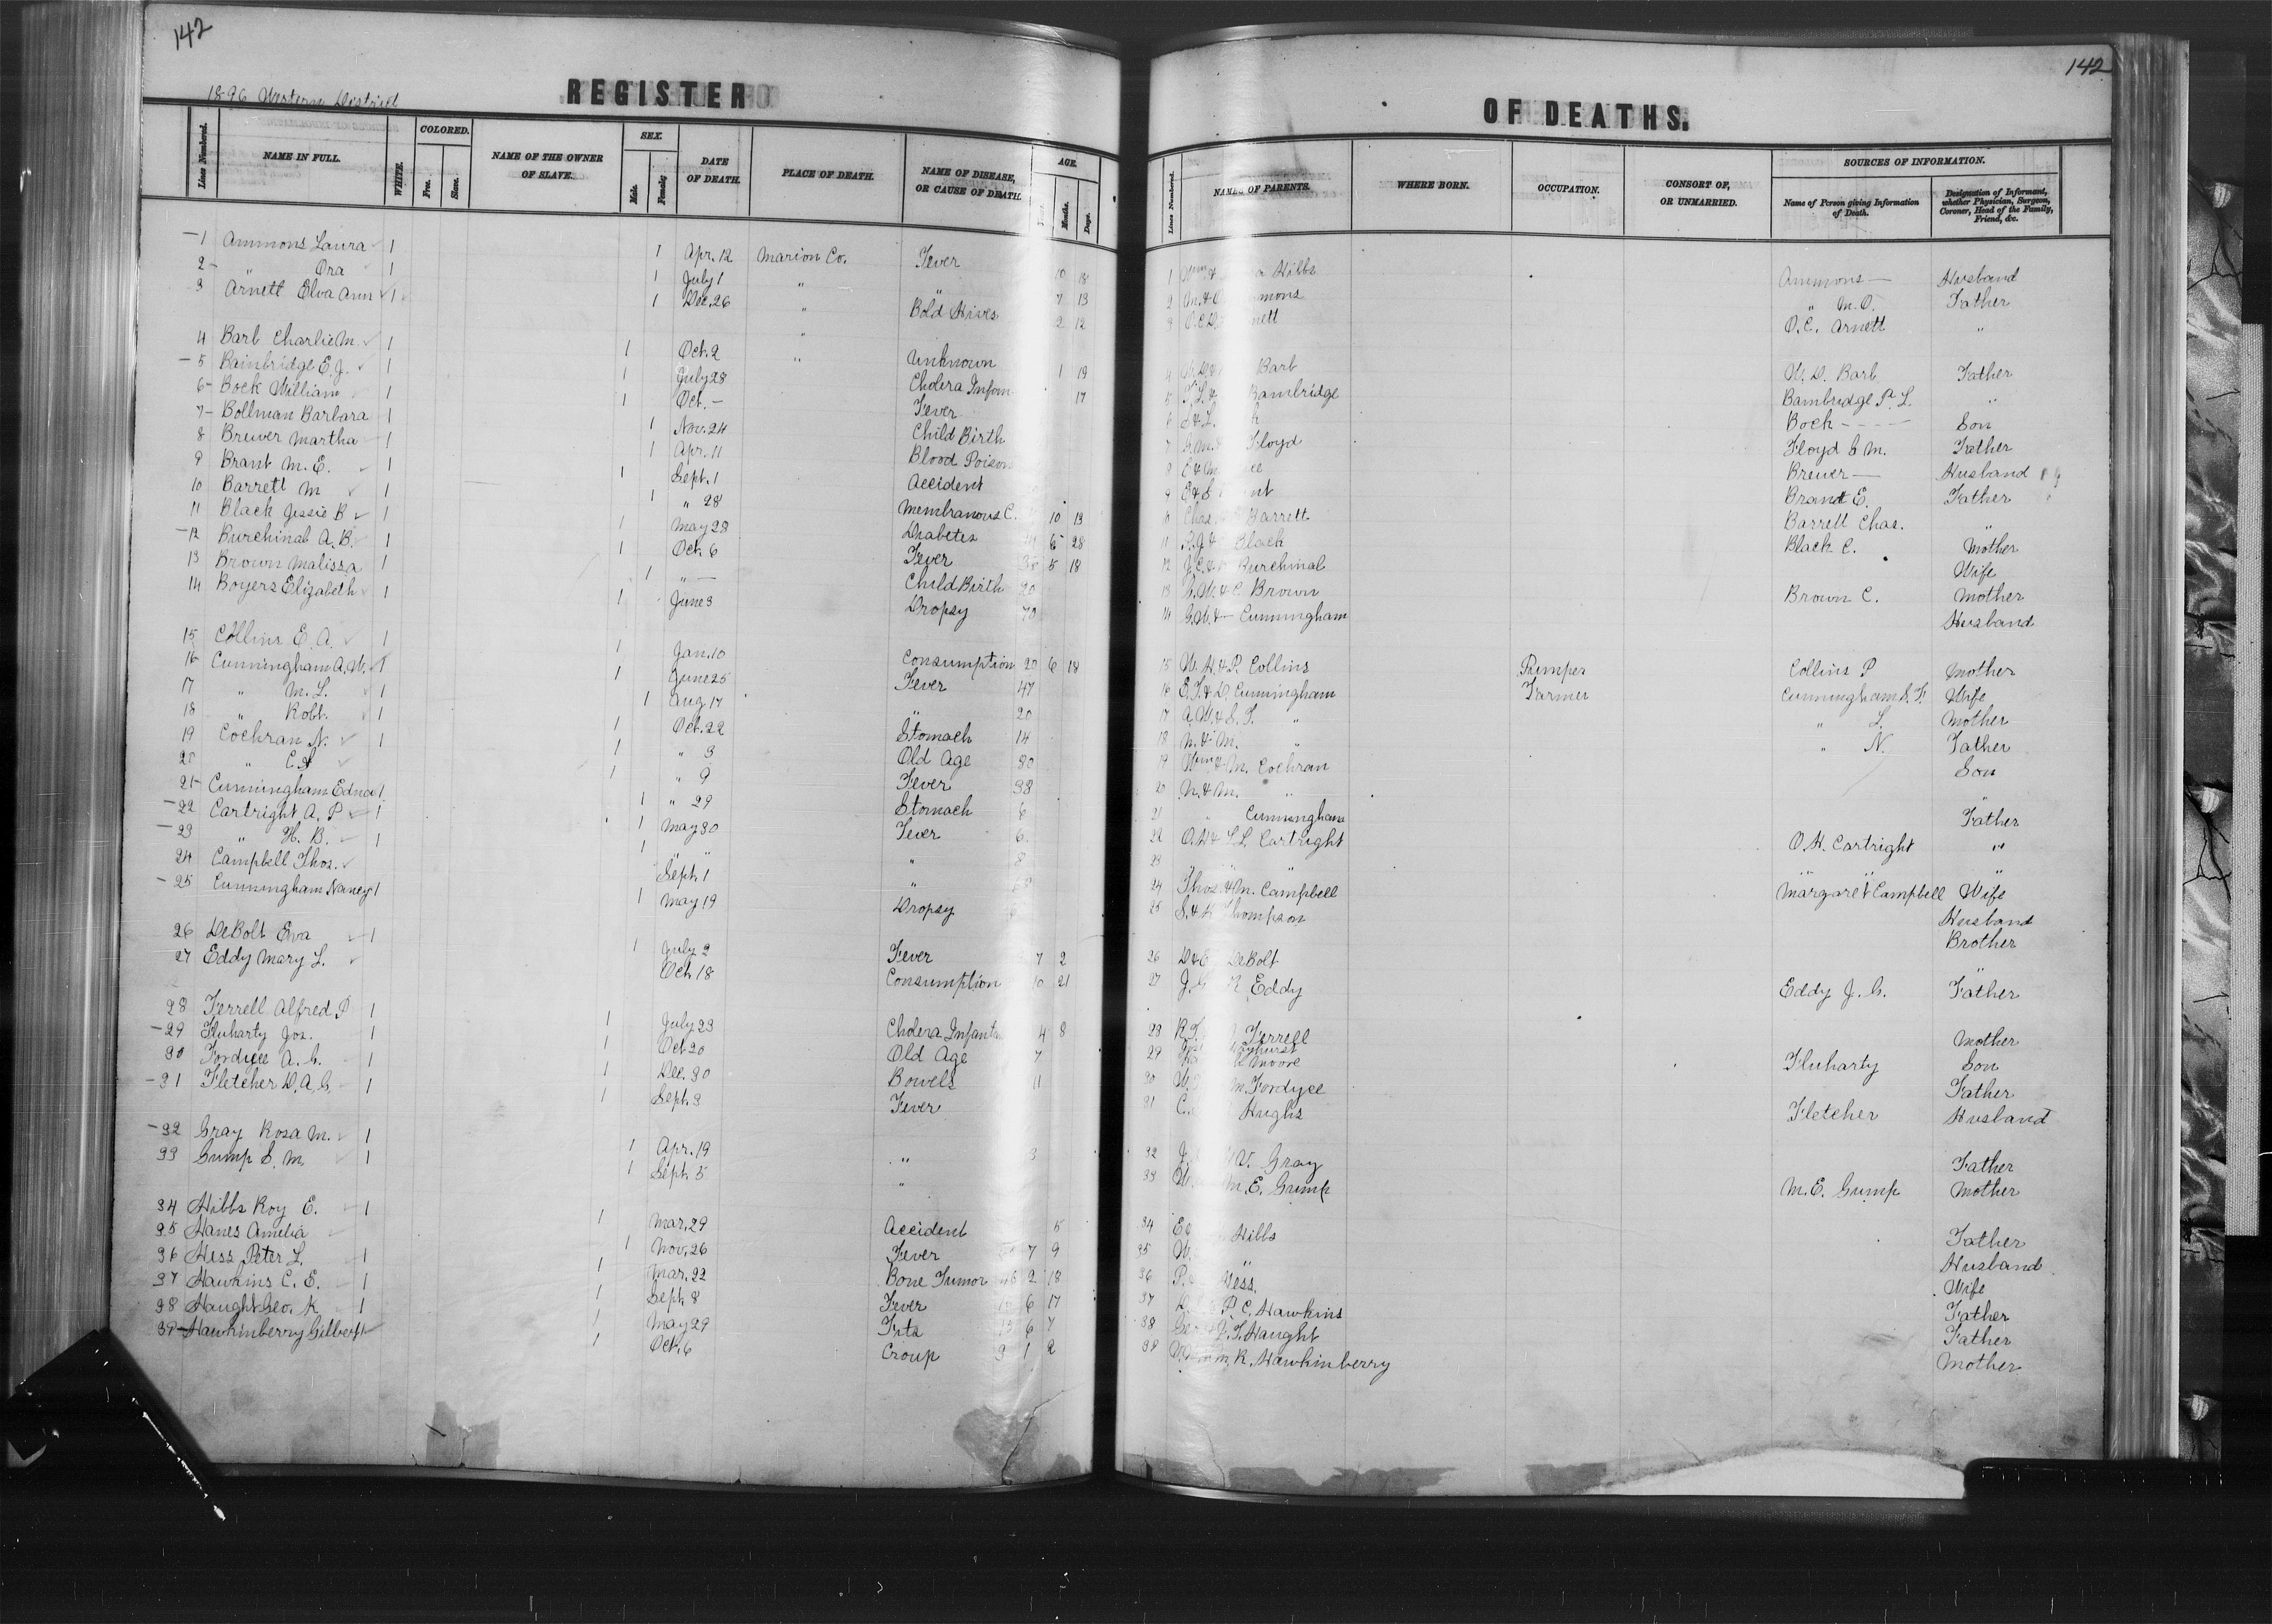 142
1896 Western District
REGISTER
Lines Numbered. NAME IN FULL. WHITE. COLORED. Free. Slave. NAME OF THE OWNER OF SLAVE. SEX. Male. Female. DATE OF DEATH. PLACE OF DEATH. NAME OF DISEASE, OR CAUSE OF DEATH. AGE. Months. Days.
1 Ammons Laura 1 1 Apr. 12 Marion Co. Fever 10 18
2 " Ora 1 1 July 1 " " 7 13
3 Arnett Elva Ann 1 1 Dec. 26 " Bold Hives 2 12
4 Barb Charlie M. 1 1 Oct. 2 " Unknown 1 19
5 Bainbridge E. J. 1 1 July 28 " Cholera Infam 17
6 Bock William 1 1 Oct. — Fever
7 Bollman Barbara 1 1 Nov. 24 Child Birth
8 Brewer Martha 1 1 Apr. 11 Blood Poison
9 Brant M. E. 1 1 Sept. 1 Accident
10 Barrett M 1 1 " 28 Membranous C. 10 13
11 Black Jessie B 1 1 May 28 Diabetes 6 28
12 Burchinal A. B. 1 1 Oct. 6 Fever 38 5 18
13 Brown Malissa 1 1 " — Child Birth 20
14 Boyers Elizabeth 1 1 June 3 Dropsy 70
15 Collins E. A. 1 1 Jan. 10 Consumption 20 6 18
16 Cunningham A. W. 1 1 June 25 Fever 47
17 " M. L. 1 1 Aug 17 " 20
18 " Robt. 1 1 Oct. 22 Stomach 14
19 Cochran N. 1 1 " 3 Old Age 80
20 " C. A 1 " 9 Fever 38
21 Cunningham Edna 1 1 " 29 Stomach 6
22 Cartright A. P 1 1 May 30 Fever 6
23 " H. B. 1 1 " " " 8
24 Campbell Thos. Sept. 1 "
25 Cunningham Nancy 1 1 May 19 Dropsy
26 DeBolt Eva 1 1 July 2 Fever 7 2
27 Eddy Mary L. Oct. 18 Consumption 10 21
28 Ferrell Alfred P 1 1 July 23 Cholera Infantum 4 8
29 Fluharty Jos. 1 1 Oct 20 Old Age 7
30 Fordyce A. G. 1 1 Dec. 30 Bowels 11
31 Fletcher D. A. G. 1 1 Sept. 3 Fever
32 Gray Rosa M. 1 1 Apr. 19 " 3
33 Gump S. M. 1 1 Sept. 5 "
34 Hibbs Roy E. 1 1 Mar. 29 Accident 5
35 Hanes Amelia 1 Nov. 26 Fever 7 9
36 Hess Peter L. 1 1 Mar. 22 Bone Tumor 46 2 18
37 Hawkins C. E. 1 1 Sept. 8 Fever 6 17
38 Haught Geo. K 1 1 May 29 Fits 6 7
39 Hawkinberry Gilbert 1 1 Oct. 6 Croup 9 1 2
142
OF DEATHS.
Lines Numbered. NAMES OF PARENTS. WHERE BORN. OCCUPATION. CONSORT OF, OR UNMARRIED. SOURCES OF INFORMATION. Name of Person giving Information of Death. Designation of Informant, whether Physician, Surgeon, Coroner, Head of the Family, Friend, &c.
1 Wm & Hibbs Ammons — Husband
2 M. & " M. O. Father
3 O. C. Arnett "
4 Barb W. D. Barb Father
5 Bambridge Bambridge P. L. "
6 Bock - - - - Son
7 Floyd Floyd G M. Father
8 Brewer — Husband
9 Brandt E. Father
10 Chas. Barrett Barrett Chas. "
11 Black Black C. Mother
12 Burchinal Wife
13 G. W. & C. Brown Brown C. Mother
14 G. W. & — Cunningham Husband
15 W. H. & P. Collins Pumper Collins P Mother
16 E. T. & D. Cunningham Farmer Cunningham S. F. Wife
17 A. W. & S. F. " " L. Mother
18 N. & M. " " N. Father
19 Wm & M. Cochran Son
20 N. & M. " "
21 " Cunningham Father
22 O. H & L L. Cartright O. H. Cartright "
23 " " " "
24 Thos. & M. Campbell Margaret Campbell Wife
25 S. & K Thompson Husband
Brother
26 D & E DeBolt "
27 J. G. Eddy Eddy J. G. Father
28 R. F. Ferrell Mother
29 Moore Fluharty Son
30 M. Fordyce Father
31 C. Hughs Fletcher Husband
32 J. V. Gray Father
33 W. M. E. Gump M. E. Gump Mother
34 Hibbs Father
35 Husband
36 P. Hess. Wife
37 P. C. Hawkins Father
38 Haught Father
39 K. Hawkinberry Mother